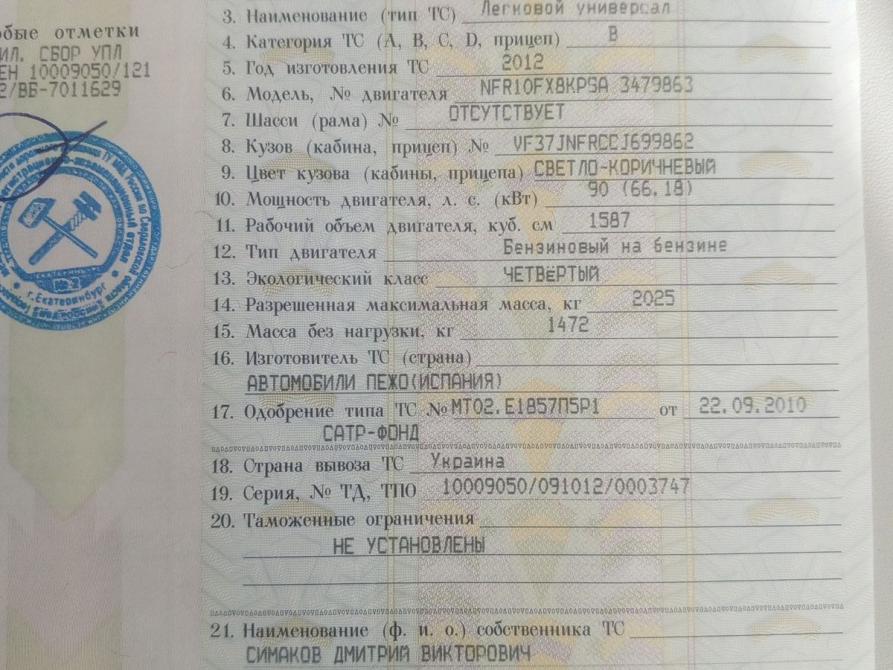 обые отметки
ИЛ. СБОР УПЛ
ЕН 10009050/121
2/ВБ-7011629
3. Наименование (тип ТС) Легковой универсал
4. Категория ТС (А, В, С, D, прицеп) В
5. Год изготовления ТС 2012
6. Модель, № двигателя NFR10FX8KPSA 3479863
7. Шасси (рама) № ОТСУТСТВУЕТ
8. Кузов (кабина, прицеп) № VF37JNFRCCJ699862
9. Цвет кузова (кабины, прицепа) СВЕТЛО-КОРИЧНЕВЫЙ
10. Мощность двигателя, л. с. (кВт) 90 (66.18)
11. Рабочий объем двигателя, куб. см 1587
12. Тип двигателя Бензиновый на бензине
13. Экологический класс ЧЕТВЁРТЫЙ
14. Разрешенная максимальная масса, кг 2025
15. Масса без нагрузки, кг 1472
16. Изготовитель ТС (страна)
АВТОМОБИЛИ ПЕЖО(ИСПАНИЯ)
17. Одобрение типа ТС № МТ02.Е1857П5Р1 от 22.09.2010
САТР-ФОНД
18. Страна вывоза ТС Украина
19. Серия, № ТД, ТПО 10009050/091012/0003747
20. Таможенные ограничения
НЕ УСТАНОВЛЕНЫ
21. Наименование (ф. и. о.) собственника ТС
СИМАКОВ ДМИТРИЙ ВИКТОРОВИЧ
г.Екатеринбург